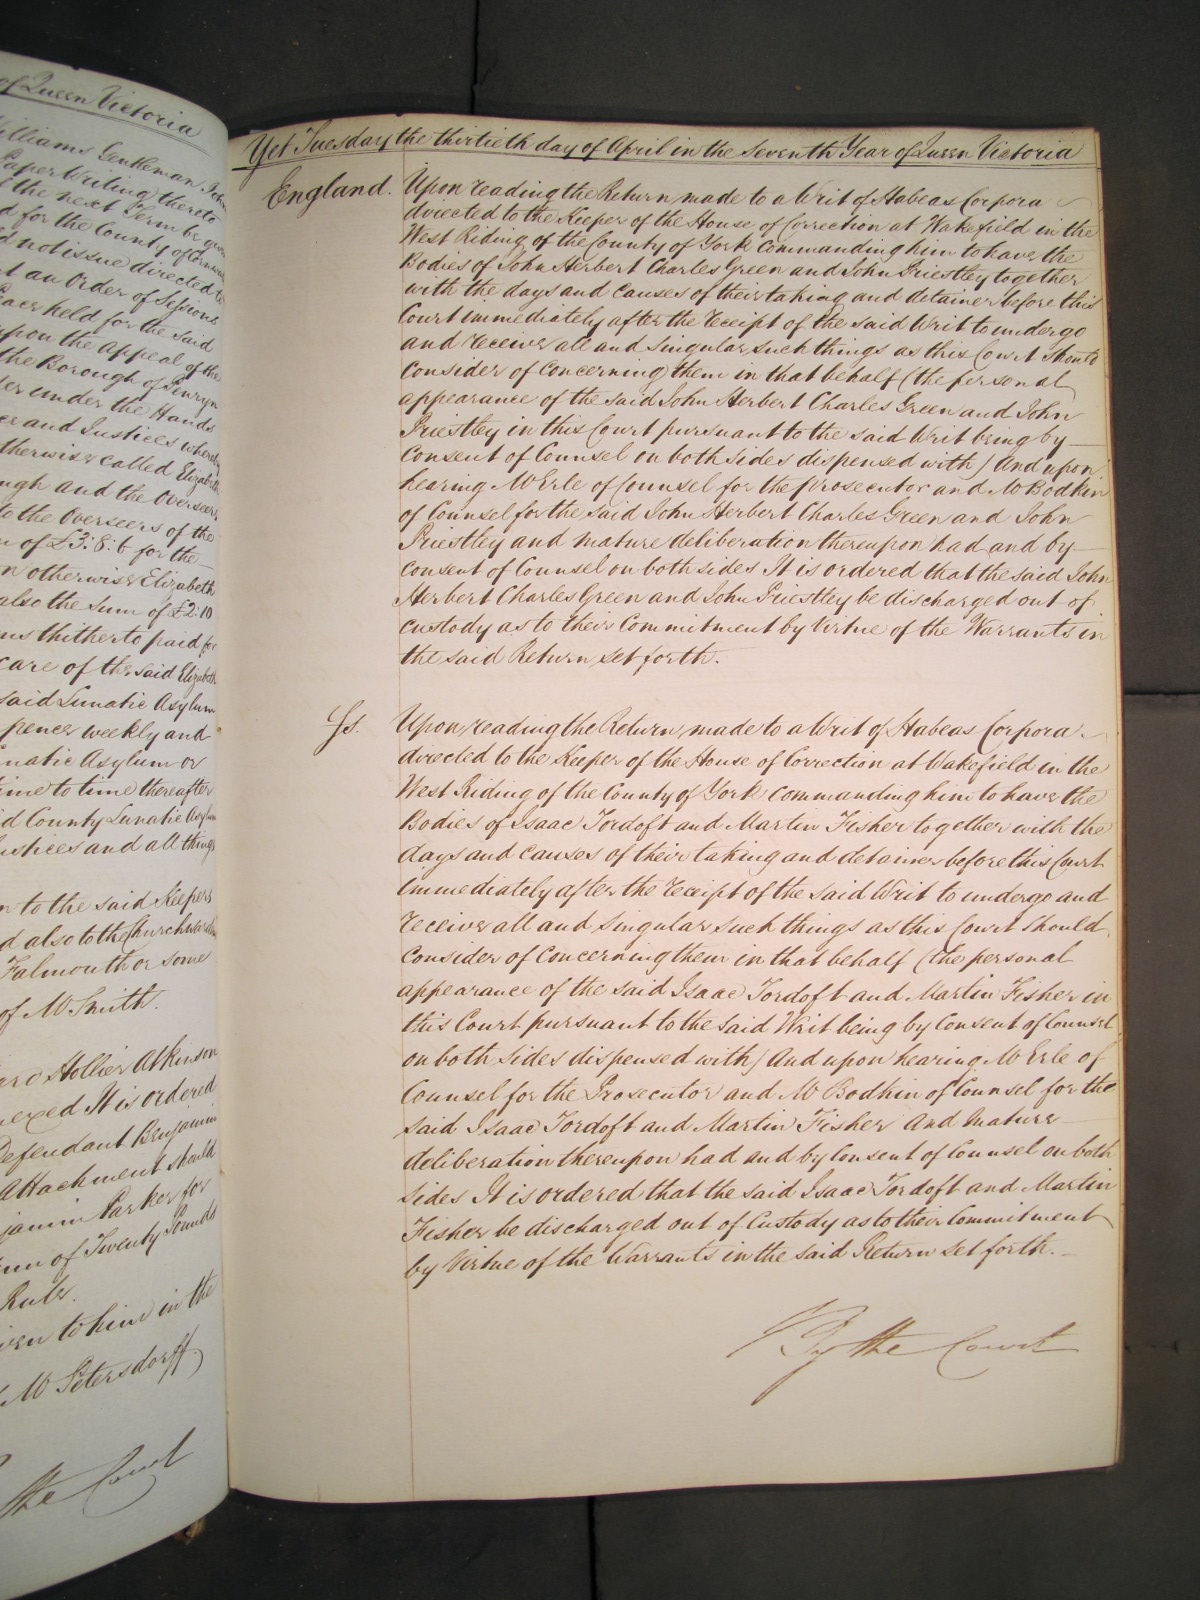 of Queen Victoria
Williams Gentleman
Paper Writing thereto
the next Term be given
d for the County of Cornwall
d not issue directed to
t an Order of Sessions
Peace held for the said
upon the Appeal of the
the Borough of Penryn
er under the Hands
ce and Justices whereby
therwise called Elizabeth
ugh and the Overseers
to the Overseers of the
m of £3: 8: 6 for the
n otherwise Elizabeth
also the Sum of £2: 10
ms thitherto paid for
care of the said Elizabeth
said Lunatic Asylum
pence weekly and
unatic Asylum or
time to time thereafter
id County Lunatic Asylum
Justices and all things
n to the said Keepers
d also to the Churchwardens
Falmouth or some
of Mr Smith.
Hollier Atkinson
nexed It is ordered
Defendant Benjamin
Attachment should
jamin Parker for
um of Twenty Pounds
Rule.
iven to him in the
Mr Petersdorff
the Court
Yet Tuesday the thirtieth day of April in the Seventh Year of Queen Victoria
England. Upon reading the Return made to a Writ of Habeas Corpora
directed to the Keeper of the House of Correction at Wakefield in the
West Riding of the County of York commanding him to have the
Bodies of John Herbert Charles Green and John Priestley together
with the days and causes of their taking and detainer before this
Court immediately after the receipt of the said Writ to undergo
and receive all and singular such things as this Court should
consider of concerning them in that behalf (the personal
appearance of the said John Herbert Charles Green and John
Priestley in this Court pursuant to the said Writ being by
Consent of Counsel on both sides dispensed with) And upon
hearing Mr Erle of Counsel for the Prosecutor and Mr Bodkin
of Counsel for the said John Herbert Charles Green and John
Priestley and mature deliberation thereupon had and by
consent of Counsel on both sides It is ordered that the said John
Herbert Charles Green and John Priestley be discharged out of
custody as to their Commitment by Virtue of the Warrants in
the said Return set forth.
Upon reading the Return made to a Writ of Habeas Corpora
directed to the Keeper of the House of Correction at Wakefield in the
West Riding of the County of York commanding him to have the
Bodies of Isaac Tordoft and Martin Fisher together with the
days and causes of their taking and detainer before this Court
immediately after the receipt of the said Writ to undergo and
receive all and singular such things as this Court should
consider of concerning them in that behalf (the personal
appearance of the said Isaac Tordoft and Martin Fisher in
this Court pursuant to the said Writ being by Consent of Counsel
on both sides dispensed with) And upon hearing Mr Erle of
Counsel for the Prosecutor and Mr Bodkin of Counsel for the
said Isaac Tordoft and Martin Fisher And mature
deliberation thereupon had and by Consent of Counsel on both
sides It is ordered that the said Isaac Tordoft and Martin
Fisher be discharged out of Custody as to their Commitment
by Virtue of the Warrants in the said Return set forth.
By the Court